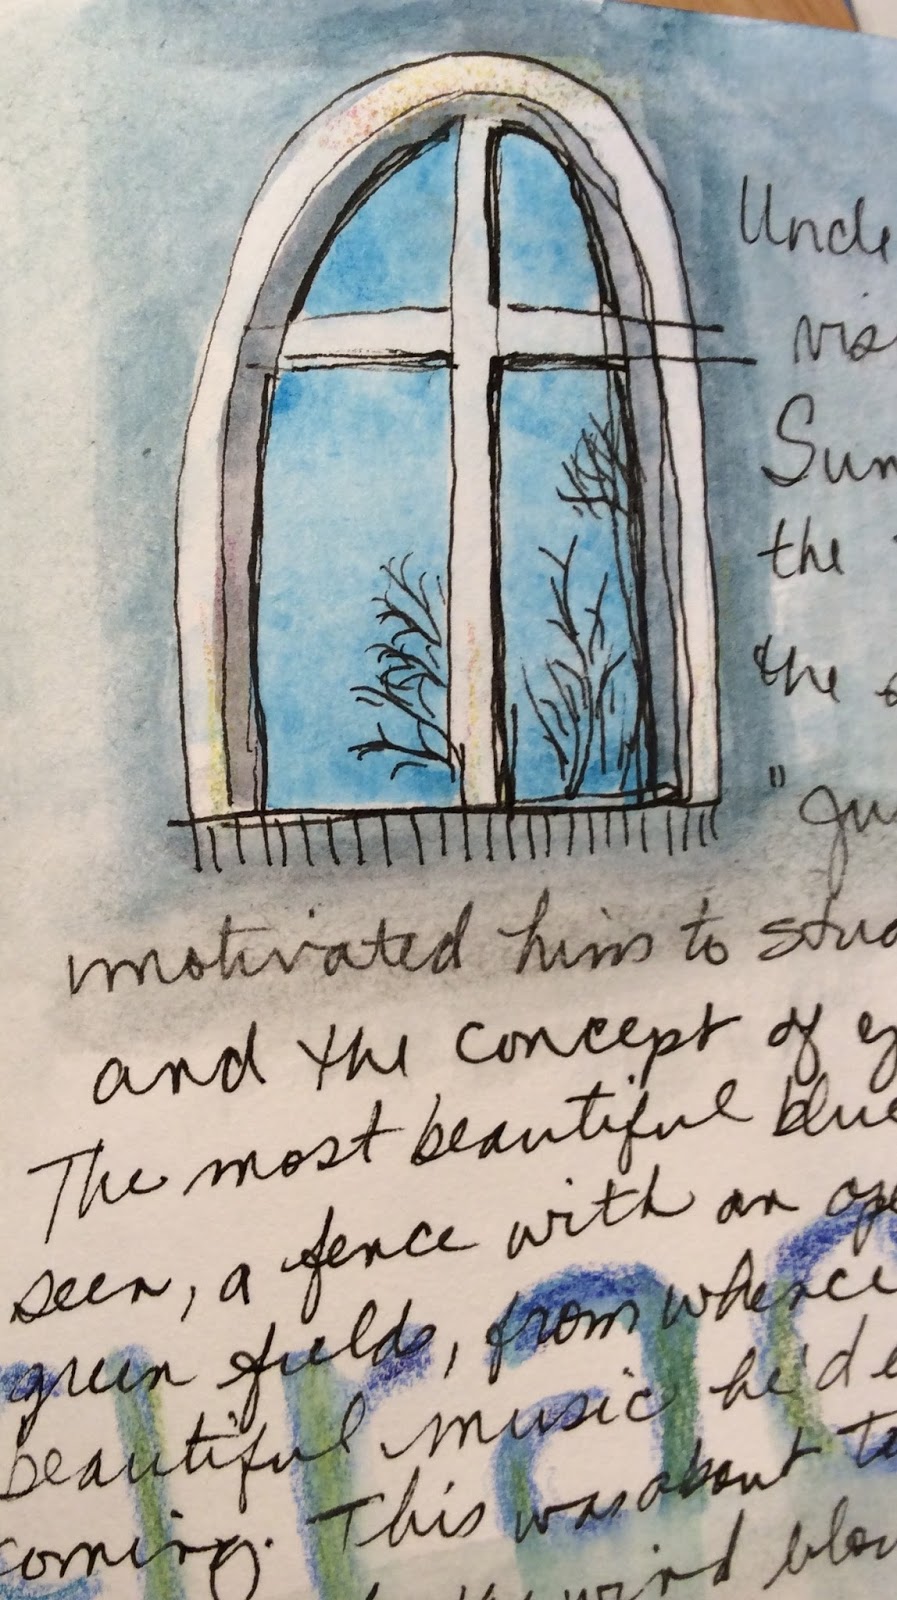 Unde
vis
Sun
the
the
"Ju
motivated him to stud
and the concept of
The most beautiful blue
seen, a fence with an ope
green fields, from whence
beautiful music he'd e
coming. This was about
the wind blow